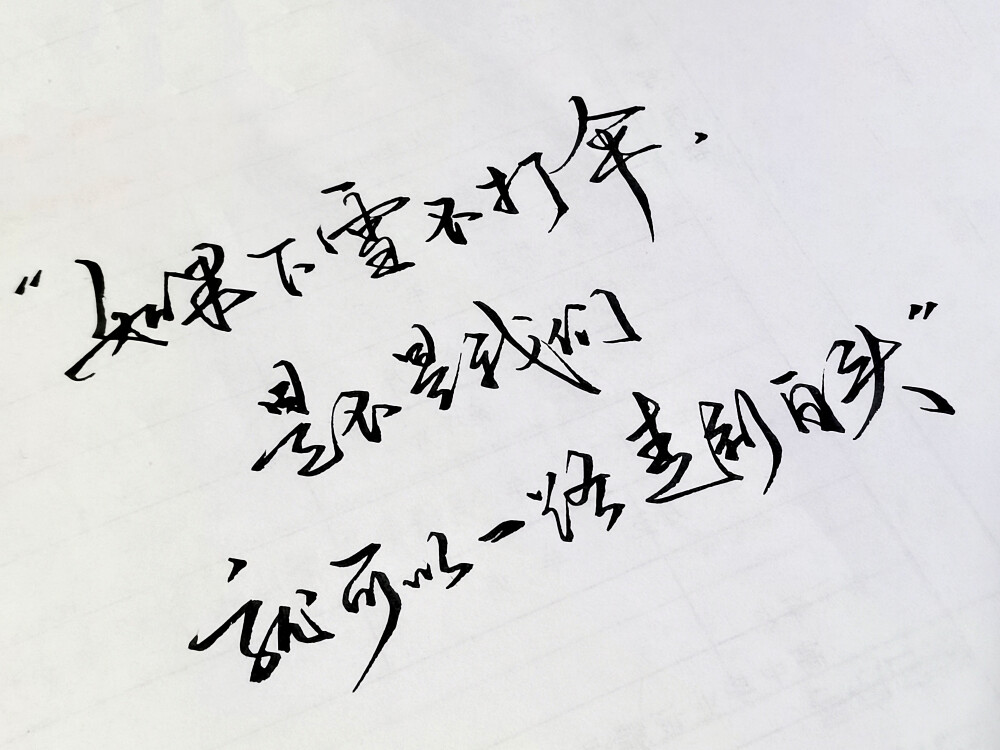 “如果下雪不打伞.
是不是我们
就可以一路走到白头、”